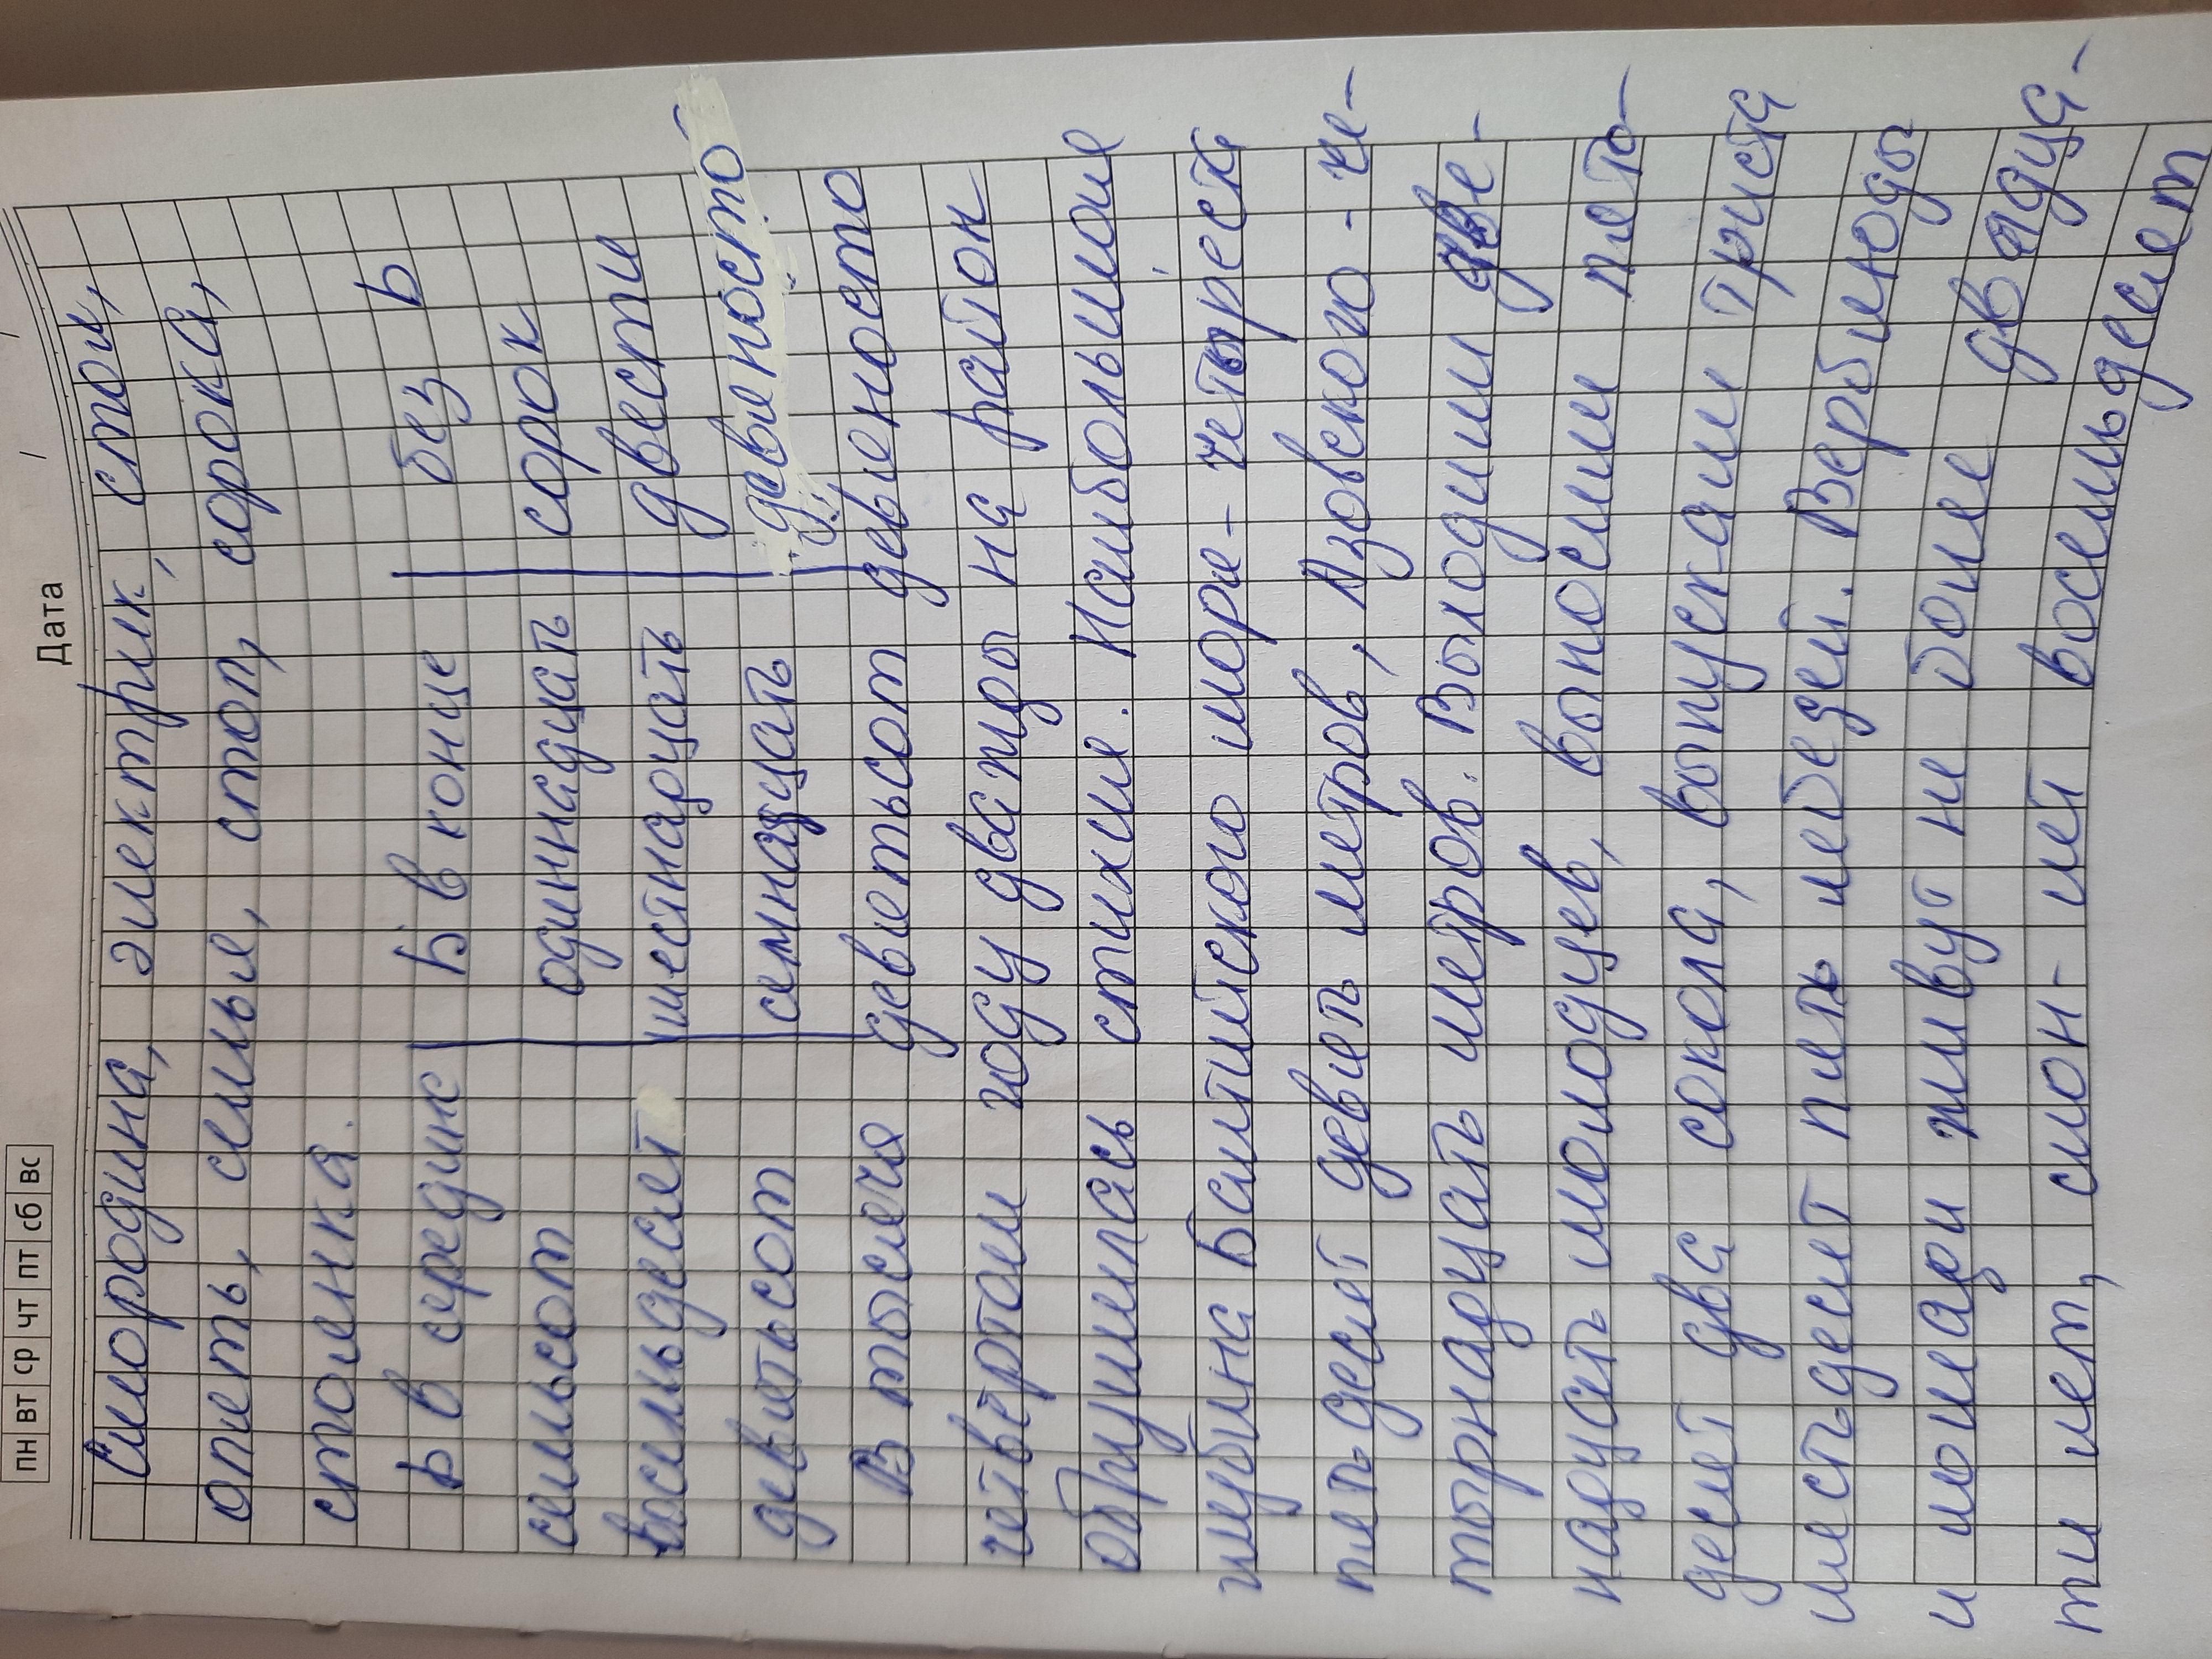 Дата
пн вт ср чт пт сб вс
Смородина, электрик, сток,
опять, семья, стоп, сорока,
стоенка.
Ь в средине | Ь в конце | без Ь
семьсот | одиннадцать | сорок
восемьдесят | шестнадцать | двести
девятьсот | семнадцать | девяносто
В тысяча девятьсот девяносто
четвёртом году дважды на район
обрушилась стихия. Наибольшая
глубина Балтийского моря - четыреста
пятьдесят девять метров, Азовского - че-
тырнадцать метров. Выходили две-
надцать молодцев, выносили пять-
десят два сокола, выпускали триста
шестьдесят пять лебедей. Верблюды
и лошади живут не долее двадца-
ти лет, слон - лет восемьдесят